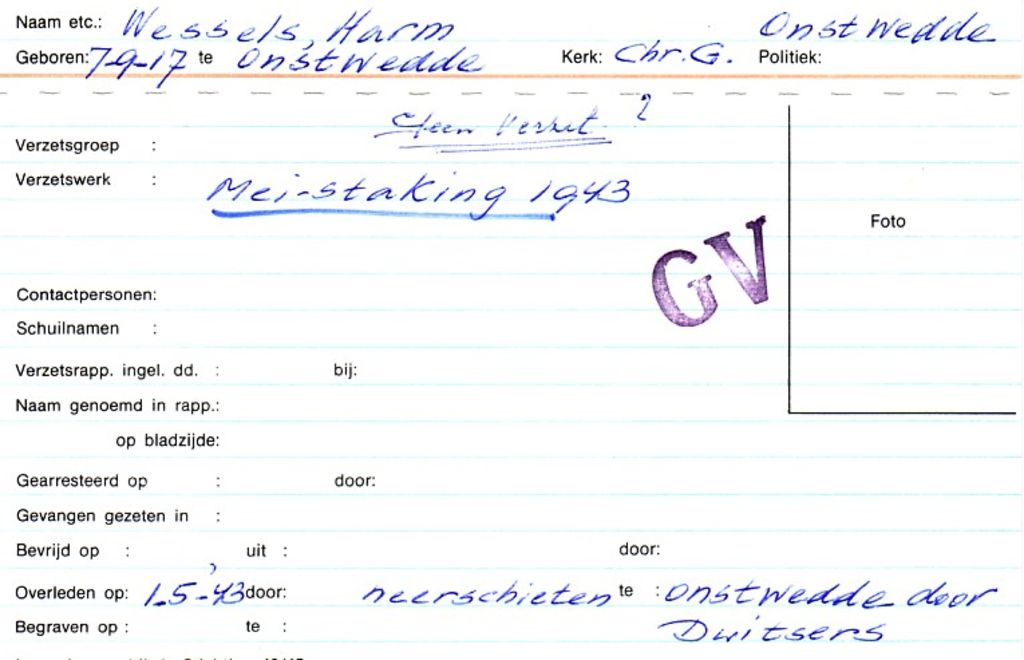 Naam etc.: Wessels, Harm Onstwedde
Geboren: 7-9-17 te Onstwedde Kerk: Chr.G. Politiek:
Geen Verzet ?
Verzetsgroep :
Verzetswerk : Mei-staking 1943
GV
Foto
Contactpersonen:
Schuilnamen :
Verzetsrapp. ingel. dd. : bij:
Naam genoemd in rapp.:
op bladzijde:
Gearresteerd op : door:
Gevangen gezeten in :
Bevrijd op : uit : door:
Overleden op: 1-5-'43 door: neerschieten te : Onstwedde door
Begraven op : te : Duitsers